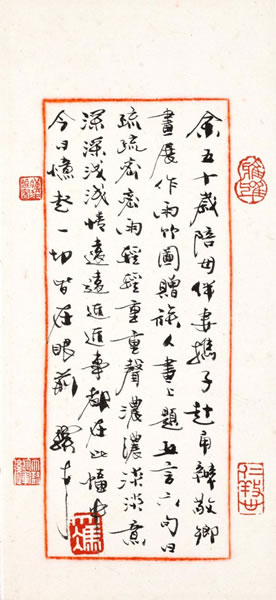 余五十歲陪母偕妻攜子赴甬辦敬鄉
畫展作雨竹圖贈族人畫上題五言六句曰
疏疏密密雨輕輕重重聲濃濃淡淡意
深深淺淺情遠遠近近事都在此幅中
今日憶起一切皆在眼前